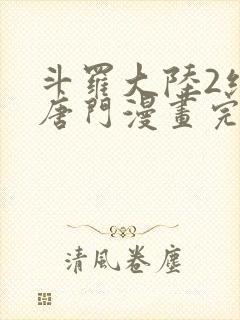 斗羅大陸2
唐門漫畫完
清風卷塵